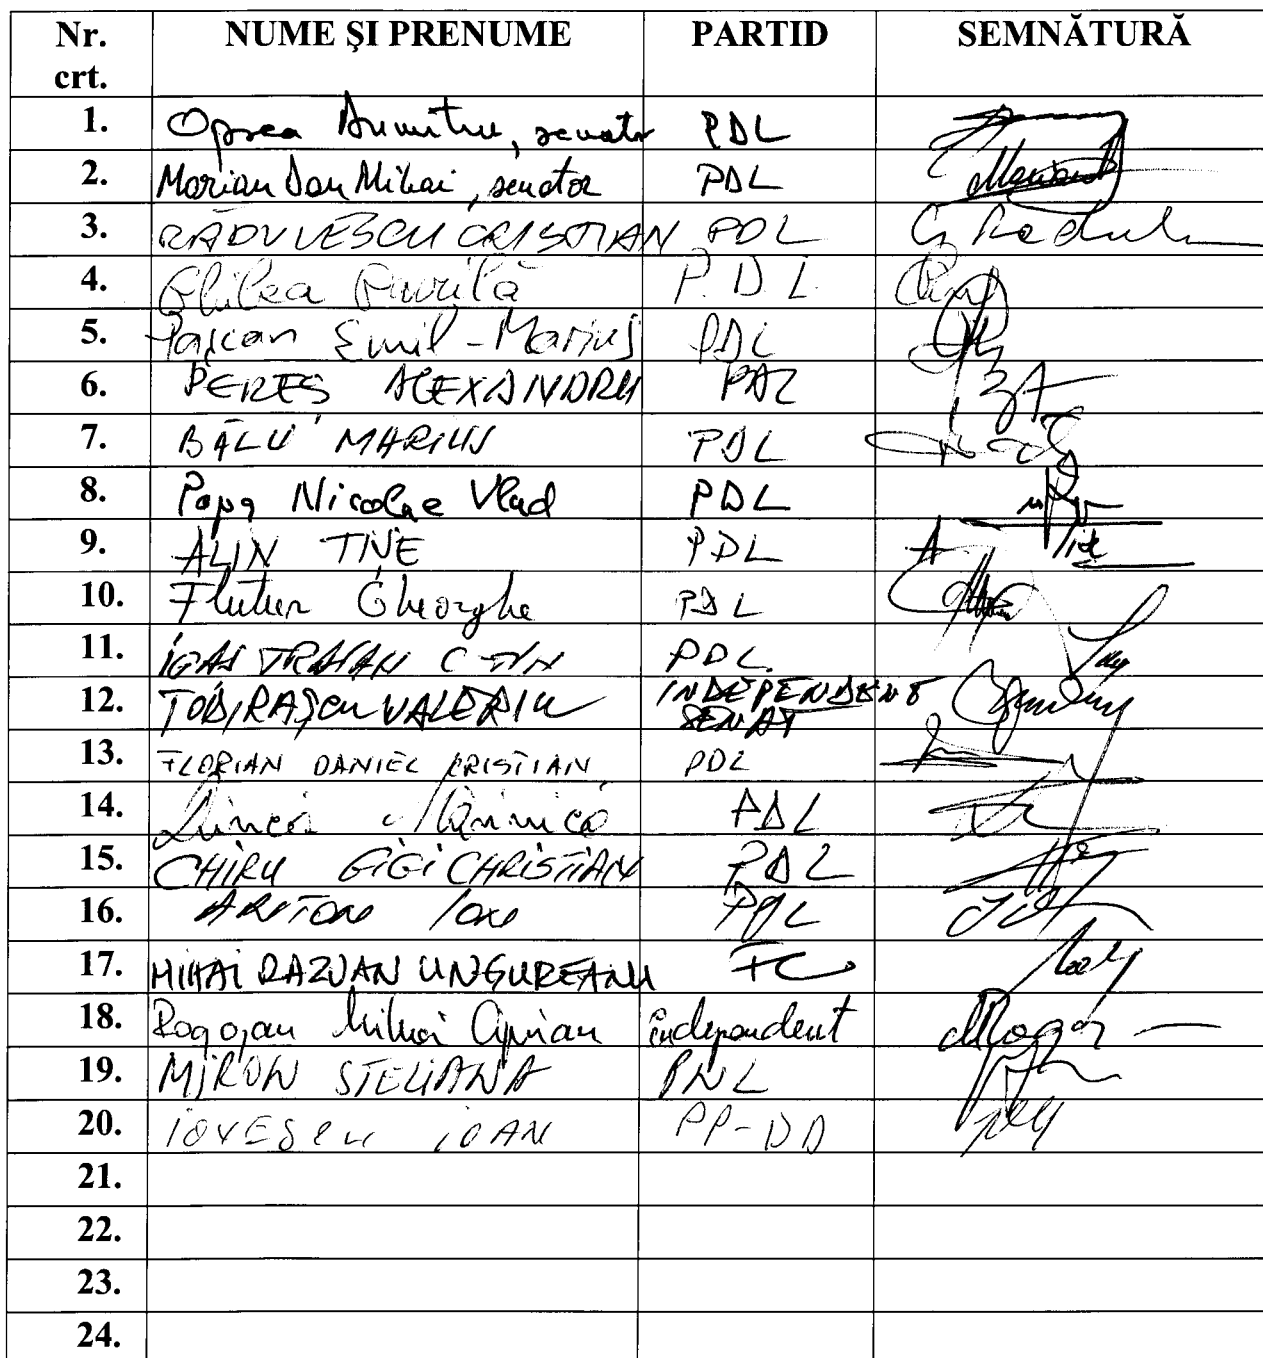 Nr. crt. NUME ŞI PRENUME PARTID SEMNĂTURĂ
1. Oprea Dumitru, senator PDL
2. Marian Dan Mihai, senator PDL
3. RĂDULESCU CRISTIAN PDL
4. Ghilea Găvrilă P.D.L.
5. Pașcan Emil-Marius PDL
6. PEREȘ ALEXANDRU PDL
7. BĂLU MARIUS PDL
8. Popa Nicolae Vlad PDL
9. ALIN TIȘE PDL
10. Flutur Gheorghe PDL
11. IGAȘ TRAIAN C-TIN PDL
12. TODIRAȘCU VALERIU INDEPENDENT
SENAT
13. FLORIAN DANIEL CRISTIAN PDL
14. PDL
15. CHIRU GIGI CHRISTIAN PDL
16. ARITON ION PDL
17. MIHAI RAZVAN UNGUREANU FC
18. Rogojan Mihai Ciprian independent
19. MIRON STELIANA PNL
20. IOVESCU IOAN PP-DD
21.
22.
23.
24.